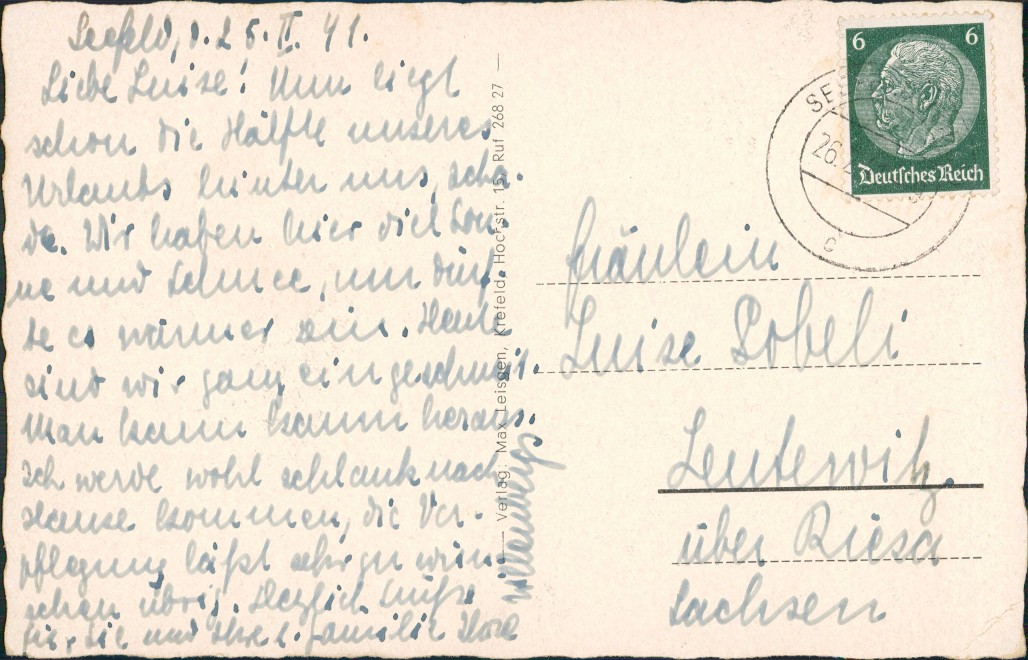 Seefeld, d. 25. II. 41.
Liebe Luise! Nun liegt
schon die Hälfte unseres
Urlaubs hinter uns, scha-
de. Wir haben hier viel Son-
ne und Schnee, nur dürf-
te es wärmer sein. Heute
sind wir ganz eingeschneit.
Man kann kaum heraus.
Ich werde wohl schlank nach
Hause kommen, die Ver-
pflegung läßt sehr zu wün-
schen übrig. Herzlich Grüße
für Sie und Ihre l. Familie Ihre
Verlag: Max Leisgen, Krefeld, Hochstr. 15, Ruf 268 27
6 6
Deutsches Reich
SE
26.2
c
Fräulein
Luise
Leutewitz
über Riesa
Sachsen